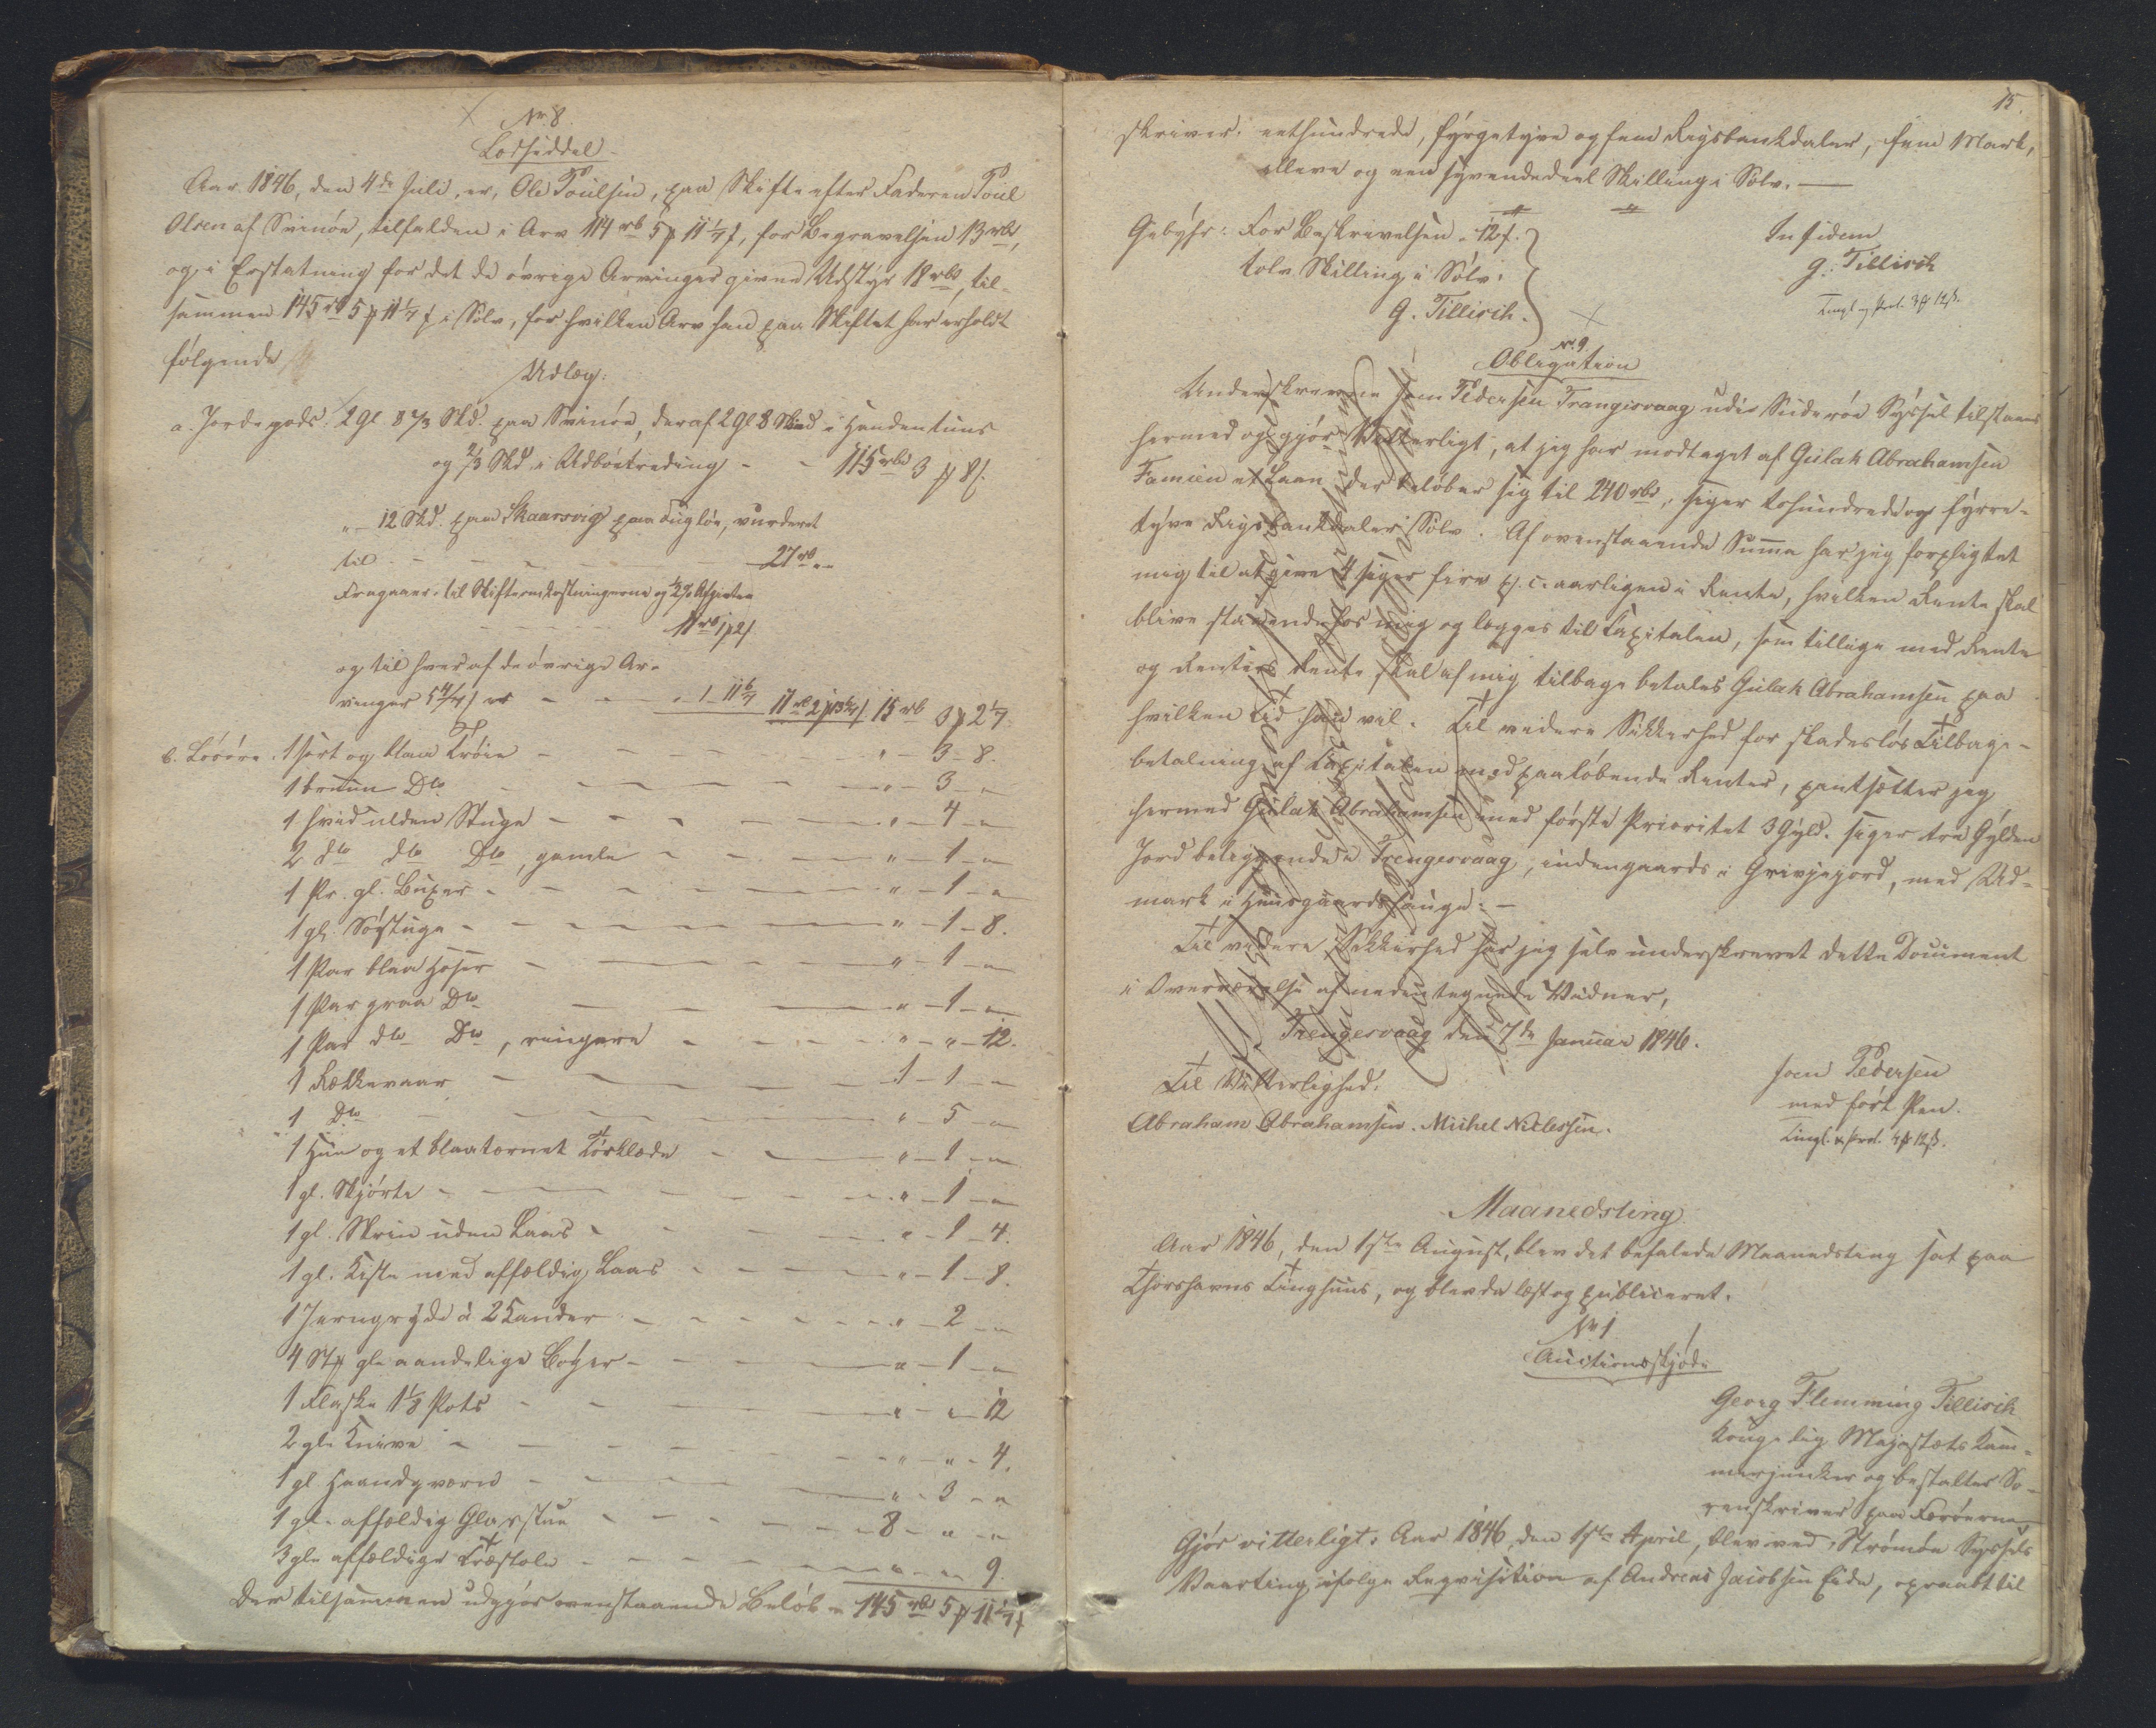 No 8
Lodseddel
Aar 1846, den 4de Juli, er, Ole Poulsen, paa Skifte efter Faderen Poul
Olsen af Svinöe, tilfalden i Arv 114 rb 5 11 1/7, for Begravelsen 13 rbd,
og i Erstatning for det de övrige Arvinger givne Udstyr 18 rbd, til-
sammen 145 rb 5 11 1/7 i Sölv, for hvilken Arv han paa Skiftet har erholdt
fölgende
Udlæg:
a. Jordegods: 2 Gl. 8 2/3 Skd. paa Svinöe, deraf 2 Gl 8 Skind i Handentuns
og 2/3 Skd i Udböitredung - - 115 rbd 3 8
" - 12 Skd. paa Skaarsvig paa Fuglöe, vurderet
til - - - 27 rb " -
Fragaaer: til Skifteomkostningerne og 1/2 pC Afgiften
11 rb 1 2
og til hver af de övrige Ar-
vinger - - - 1 - 11 6/7 15 rb 3 2 1/7
b. Lösöre. 1 sort og blaa Tröie - - - " - 3 - 8.
1 bruun Do - - - " - 3 - "
1 hvid ulden Stuge - - - " - 4 - "
2 do do Do, gamle - - - " - 1 - "
1 Pr. gl. Buxer - - - " - 1 - "
1 gl. Söstuge - - - " - 1 - 8.
1 Par blaa Hoser - - - " - 1 - "
1 Par graa Do - - - " - 1 - "
1 Par do Do, ringere - - - " - " - 12.
1 Rekkevaar - - - 1 - 1 - "
1 Do - - - " - 5 - "
1 Hue og et blaaternet Törklæde - - " - 1 - "
1 gl. Skjorte - - - " - 1 - "
1 gl. Skrin uden Laas - - - " - 1 - 4.
1 gl. Kiste med affældig Laas - - - " - 1 - 8.
1 Jerngryde à 2 Kander - - - " - 2 - "
4 Stk gle aandelige Böger - - - " - 1 - "
1 Flaske 1 1/8 Pots - - - " - " - 12
2 gle Knive - - - " - " - 4.
1 gl Haandqværn - - - " - 3 - "
1 gl. affældig Glasstue - - - 8 - " - "
3 gle affældige Træstole - - - " - " - 9.
Der tilsammen udgjör ovenstaaende Belöb = 145 rbd 5 11 1/7
15.
skriver: eethundrede, fyrgetyve og fem Rigsbankdaler, fem Mark,
elleve og een syvendedeel Skilling i Sölv. —
Gebyhr: For Beskrivelsen - 12 s.
tolv Skilling i Sölv.
G. Tillisch.
In fidem
G. Tillisch
Tingl. og Prot. 3 12 s.
No 9
Obligation
Underskrevne Joen Pedersen Trangisvaag udi Suderöe Syssel tilstaaer
hermed og gjör Vitterligt, at jeg har modtaget af Gulak Abrahamsen
Famien et Laan, der belöber sig til 240 rbd, siger tohundrede og fyrre-
tyve Rigsbankdaler Sölv. Af ovenstaaende Summa har jeg forpligtet
mig til at give 4 siger fire p. c. aarligen i Rente, hvilken Rente skal
blive staaende hos mig og lægges til Capitalen, som tillige med Rente
og Renters Rente skal af mig tilbage betales Gulak Abrahamsen paa
hvilken Tid han vil. Til videre Sikkerhed for skadeslös Tilbage-
betalning af Capitalen med paalöbende Renter, pantsætter jeg
hermed Gulak Abrahamsen med förste Prioritet 3 Gyld. siger tre Gylden
Jord beliggende i Trengesvaag, indengaards i Grivjejord, med Ud-
mark i Huusgaards hauge. —
Til videre Sikkerhed har jeg selv underskrevet dette Document
i Overværelse af nedentegnede Vidner,
Trengesvaag den 7de Januar 1846.
Til Vitterlighed:
Abraham Abrahamsen. Michel Niclessen.
Joen Pedersen
med fört Pen.
Tingl. & Prot. 4 12 s.
Maanedsting.
Aar 1846, den 1ste August, blev det befalede Maanedsting sat paa
Thorshavns Tinghuus, og blev da læst og publiceret.
No 1
Auctionsskjöde
Georg Flemming Tillisch
Kongelig Majestæts Kam-
merjunker og bestalter So-
renskriver paa Færöerne
Gjör vitterligt: Aar 1846, den 1ste April, blev ved Strömöe Syssels
Vaarting, ifölge Reqvisition af Andreas Jacobsen Eide, opraabt til